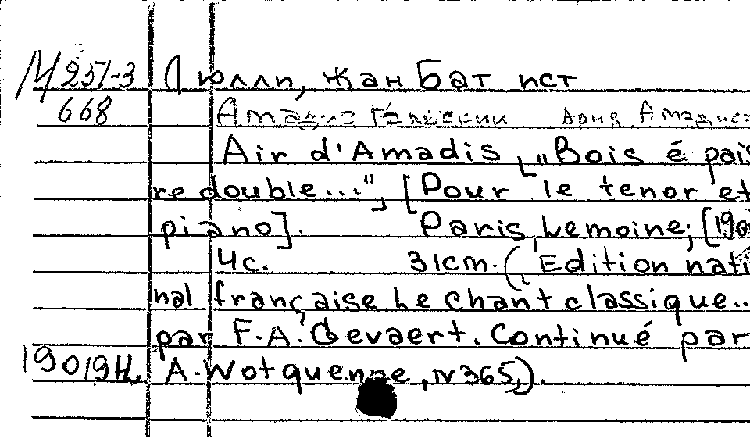 М 251-3 Люлли, Жан Батист
668 Амадис Галльский Ария Амадиса
Air d'Amadis „Bois é pais
redouble...", [Pour le tenor et
piano]. Paris, Lemoine, [190
4с. 31cm. (Edition nati
nal française Le chant classique...
par F.A. Gevaert. Continué par
19019н. A. Wotquenne, N 365,).